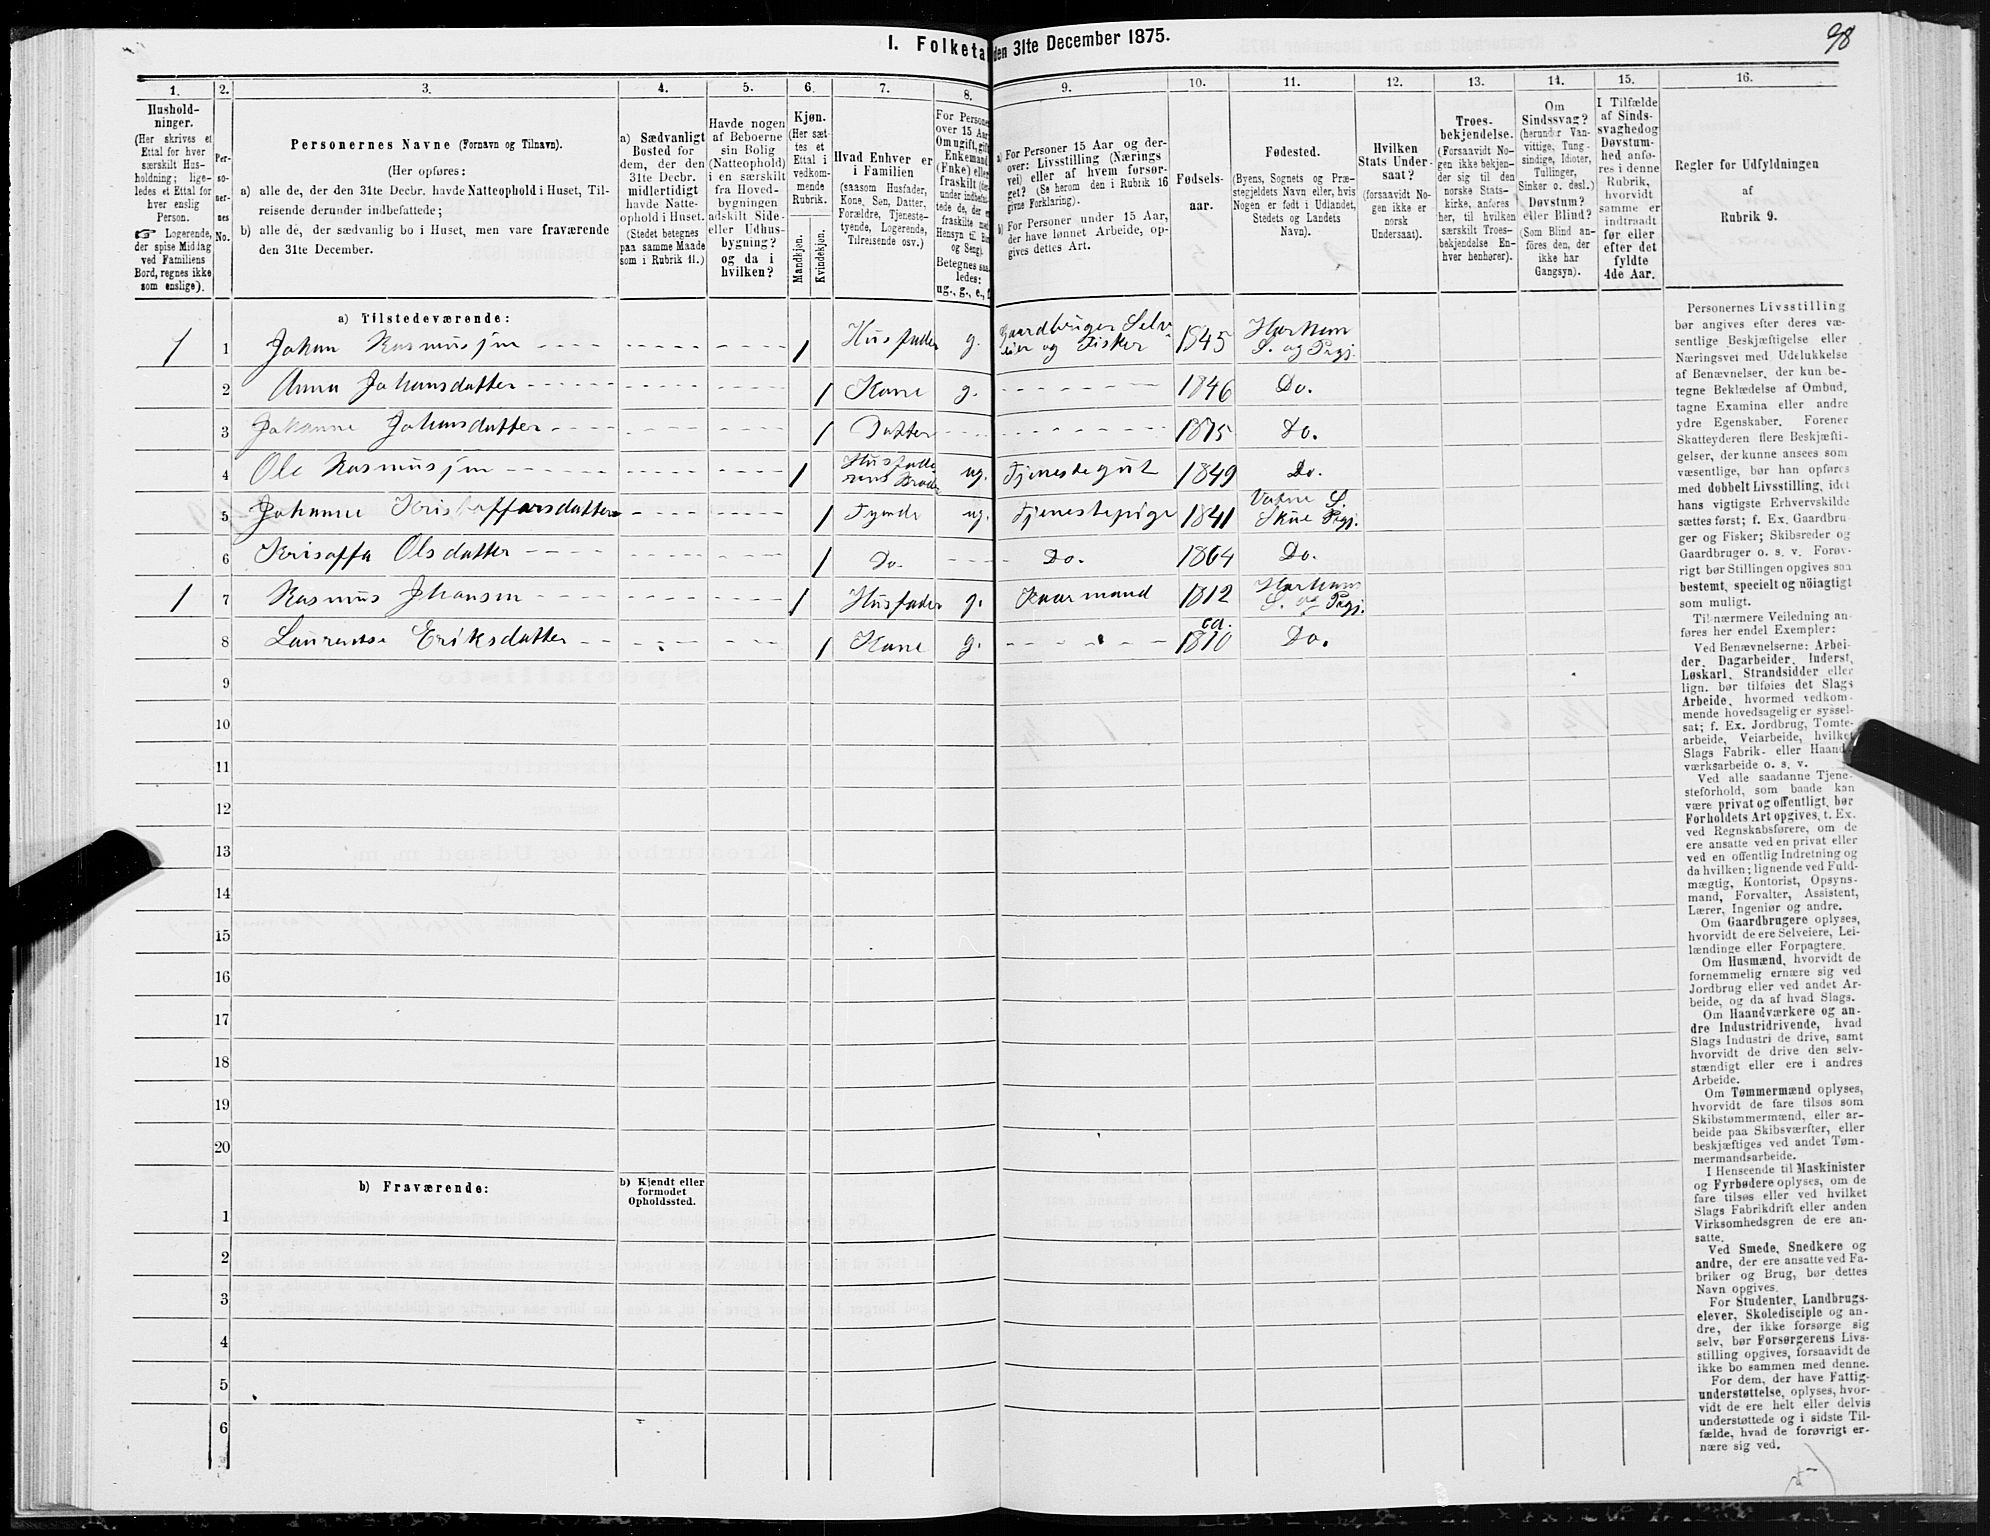 98
I. Folketal den 31te December 1875.
1.
Hushold-
ninger.
(Her skrives et
Ettal for hver
særskilt Hus-
holdning; lige-
ledes et Ettal for
hver enslig
Person.
☞ Logerende,
der spise Middag
ved Familiens
Bord, regnes ikke
som enslige).
2.
Per-
so-
ner-
nes
No.
3.
Personernes Navne (Fornavn og Tilnavn).
(Her opføres:
a) alle de, der den 31te Decbr. havde Natteophold i Huset, Til-
reisende derunder indbefattede;
b) alle de, der sædvanlig bo i Huset, men vare fraværende
den 31te December.
4.
a) Sædvanligt
Bosted for
dem, der den
31te Decbr.
midlertidigt
havde Natte-
ophold i Huset.
(Stedet betegnes
paa samme Maade
som i Rubrik 11.)
5.
Havde nogen
af Beboerne
sin Bolig
(Natteophold)
i en særskilt
fra Hoved-
bygningen
adskilt Side-
eller Udhus-
bygning?
og da i
hvilken?
6.
Kjøn.
(Her sæt-
tes et
Ettal i
vedkom-
mende
Rubrik.
Mandkjøn.
Kvindekjøn.
7.
Hvad Enhver er
i Familien
(saasom Husfader,
Kone, Søn, Datter,
Forældre, Tjeneste-
tyende, Logerende,
Tilreisende osv.)
8.
For Personer
over 15 Aar
Om ugift, gift
Enkemand
(Enke) eller
fraskilt
Betegnes saa
ledes:
ug., g., e., f.
9.
a) For Personer 15 Aar og der-
over: Livsstilling (Nærings
vei) eller af hvem forsør-
get? (Se herom den i Rubrik 16
givne Forklaring).
b) For Personer under 15 Aar,
der have lønnet Arbeide, op-
gives dettes Art.
10.
Fødsels-
aar.
11.
Fødested.
(Byens, Sognets og Præ-
stegjeldets Navn eller, hvis
Nogen er født i Udlandet,
Stedets og Landets
Navn).
12.
Hvilken
Stats Under-
saat?
(forsaavidt No-
gen ikke er
norsk
Undersaat).
13.
Troes-
bekjendelse.
(Forsaavidt No-
gen ikke bekjen-
der sig til den
norske Stats-
kirke, anføres
her, til hvilken
særskilt Troes-
bekjendelse En-
hver henhører).
14.
Om
Sindssvag?
(herunder Van-
vittige, Tung-
sindige, Idioter,
Tullinger,
Sinker o. desl.)
Døvstum?
eller Blind?
(Som Blind an-
føres den, der
ikke har
Gangsyn).
15.
I Tilfælde
af Sinds-
svaghed og
Døvstum-
hed anfø-
res i denne
Rubrik,
hvorvidt
samme er
indtraadt
før eller
efter det
fyldte
4de Aar.
16.
Regler for Udfyldningen
af
Rubrik 9.
a) Tilstedeværende:
1 1 Johan Rasmussen 1 Husfader g. Gaardbruger Selv-
eier og Fisker 1845 Harham
S. og Prgj.
2 Anna Johansdatter 1 Kone g. 1846 Do.
3 Johanne Johansdatter 1 Datter 1875 Do.
4 Ole Rasmussen 1 Husfade-
rens Broder ug. Tjenestegut 1849 Do.
5 Johanne Kristoffersdatter 1 Tyende ug. Tjenestepige 1841 Vatne S.
Prgj.
6 Olsdatter 1 Do. Do. 1864 Do.
1 7 Rasmus Jhansen 1 Husfader g. Kaarmand 1812 Harham
S. og Prgj.
8 Laurentse Eriksdatter 1 Kone g. ca.
1810 Do.
9
10
11
12
13
14
15
16
17
18
19
20
b) Fraværende:
b) Kjendt eller
formodet
Opholdssted.
1
2
3
4
5
6
Personernes Livsstilling
bør angives efter deres væ-
sentlige Beskjæftigelse eller
Næringsvei med Udelukkelse
af Benævnelser, der kun be-
tegne Beklædelse af Ombud,
tagne Examina eller andre
ydre Egenskaber. Forener
Skatteyderen flere Beskjæfti-
gelser, der kunne ansees som
væsentlige, bør han opføres
med dobbelt Livsstilling, idet
hans vigtigste Erhvervskilde
sættes først; f. Ex. Gaardbru-
ger og Fisker; Skibsreder og
Gaardbruger o. s. v. Forøv-
rigt bør Stillingen opgives saa
bestemt, specielt og nöiagtigt
som muligt.
Til nærmere Veiledning an-
føres her endel Exempler:
Ved Benævnelserne: Arbei-
der, Dagarbeider, Inderst,
Løskarl, Strandsidder eller
lign. bør tilføies det Slags
Arbeide, hvormed vedkom-
mende hovedsagelig er syssel-
sat; f. Ex. Jordbrug, Tomte-
arbeide, Veiarbeide, hvilket
Slags Fabrik- eller Haand-
værksarbeide o. s. v.
Ved alle saadanne Tjene-
steforhold, som baade kan
være privat og offentligt, bør
Forholdets Art opgives, t. Ex.
ved Regnskabsførere, om de
ere ansatte ved en privat eller
ved en offentlig Indretning og
da hvilken; lignende ved Fuld-
mægtig, Kontorist, Opsyns-
mand, Forvalter, Assistent,
Lærer, Ingeniør og andre.
Om Gaardbrugere oplyses,
hvorvidt de ere Selveiere, Lei-
lændinge eller Forpagtere.
Om Husmænd, hvorvidt de
fornemmelig ernære sig ved
Jordbrug eller ved andet Ar-
beide, og da af hvad Slags.
Om Haandværkere og an-
dre Industridrivende, hvad
Slags Industri de drive, samt
hvorvidt de drive den selv-
stændigt eller ere i andres
Arbeide.
Om Tømmermænd oplyses,
hvorvidt de fare tilsøs som
Skibstømmermænd, eller ar-
beide paa Skibsværfter, eller
beskjæftiges ved andet Tøm-
mermandsarbeide.
I Henseende til Maskinister
og Fyrbødere oplyses, om de
fare tilsøs eller ved hvilket
Slags Fabrikdrift eller anden
Virksomhedsgren de ere an-
satte.
Ved Smede, Snedkere og
andre, der ere ansatte ved Fa-
briker og Brug, bør dettes
Navn opgives.
For Studenter, Landbrugs-
elever, Skoledisciple og an-
dre, der ikke forsørge sig
selv, bør Forsørgerens Livs-
stilling opgives, forsaavidt de
ikke bo sammen med denne.
For dem, der have Fattig-
understøttelse, oplyses, hvor-
vidt de ere helt eller delvis
understøttede og i sidste Til-
fælde, hvad de forøvrigt er-
nære sig ved.